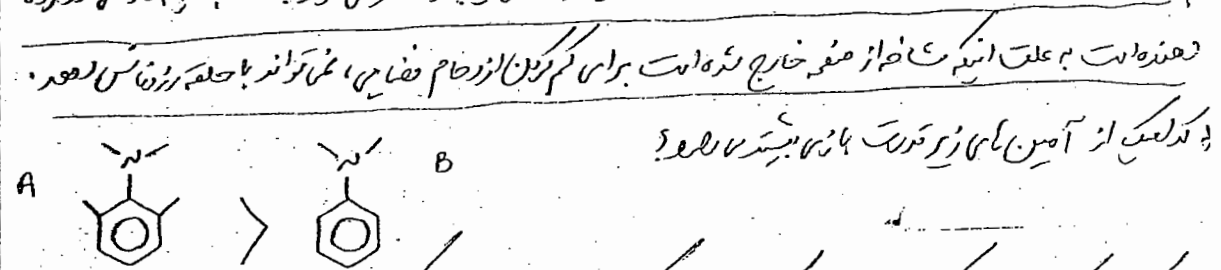 دهنده است به علت اینکه شاخه از صفحه خارج شده است برای کم کردن ازدحام فضایی، نمی تواند با حلقه رزونانس دهد.
کدامیک از آمین های زیر قدرت بازی بیشتری دارد؟
A N > N B